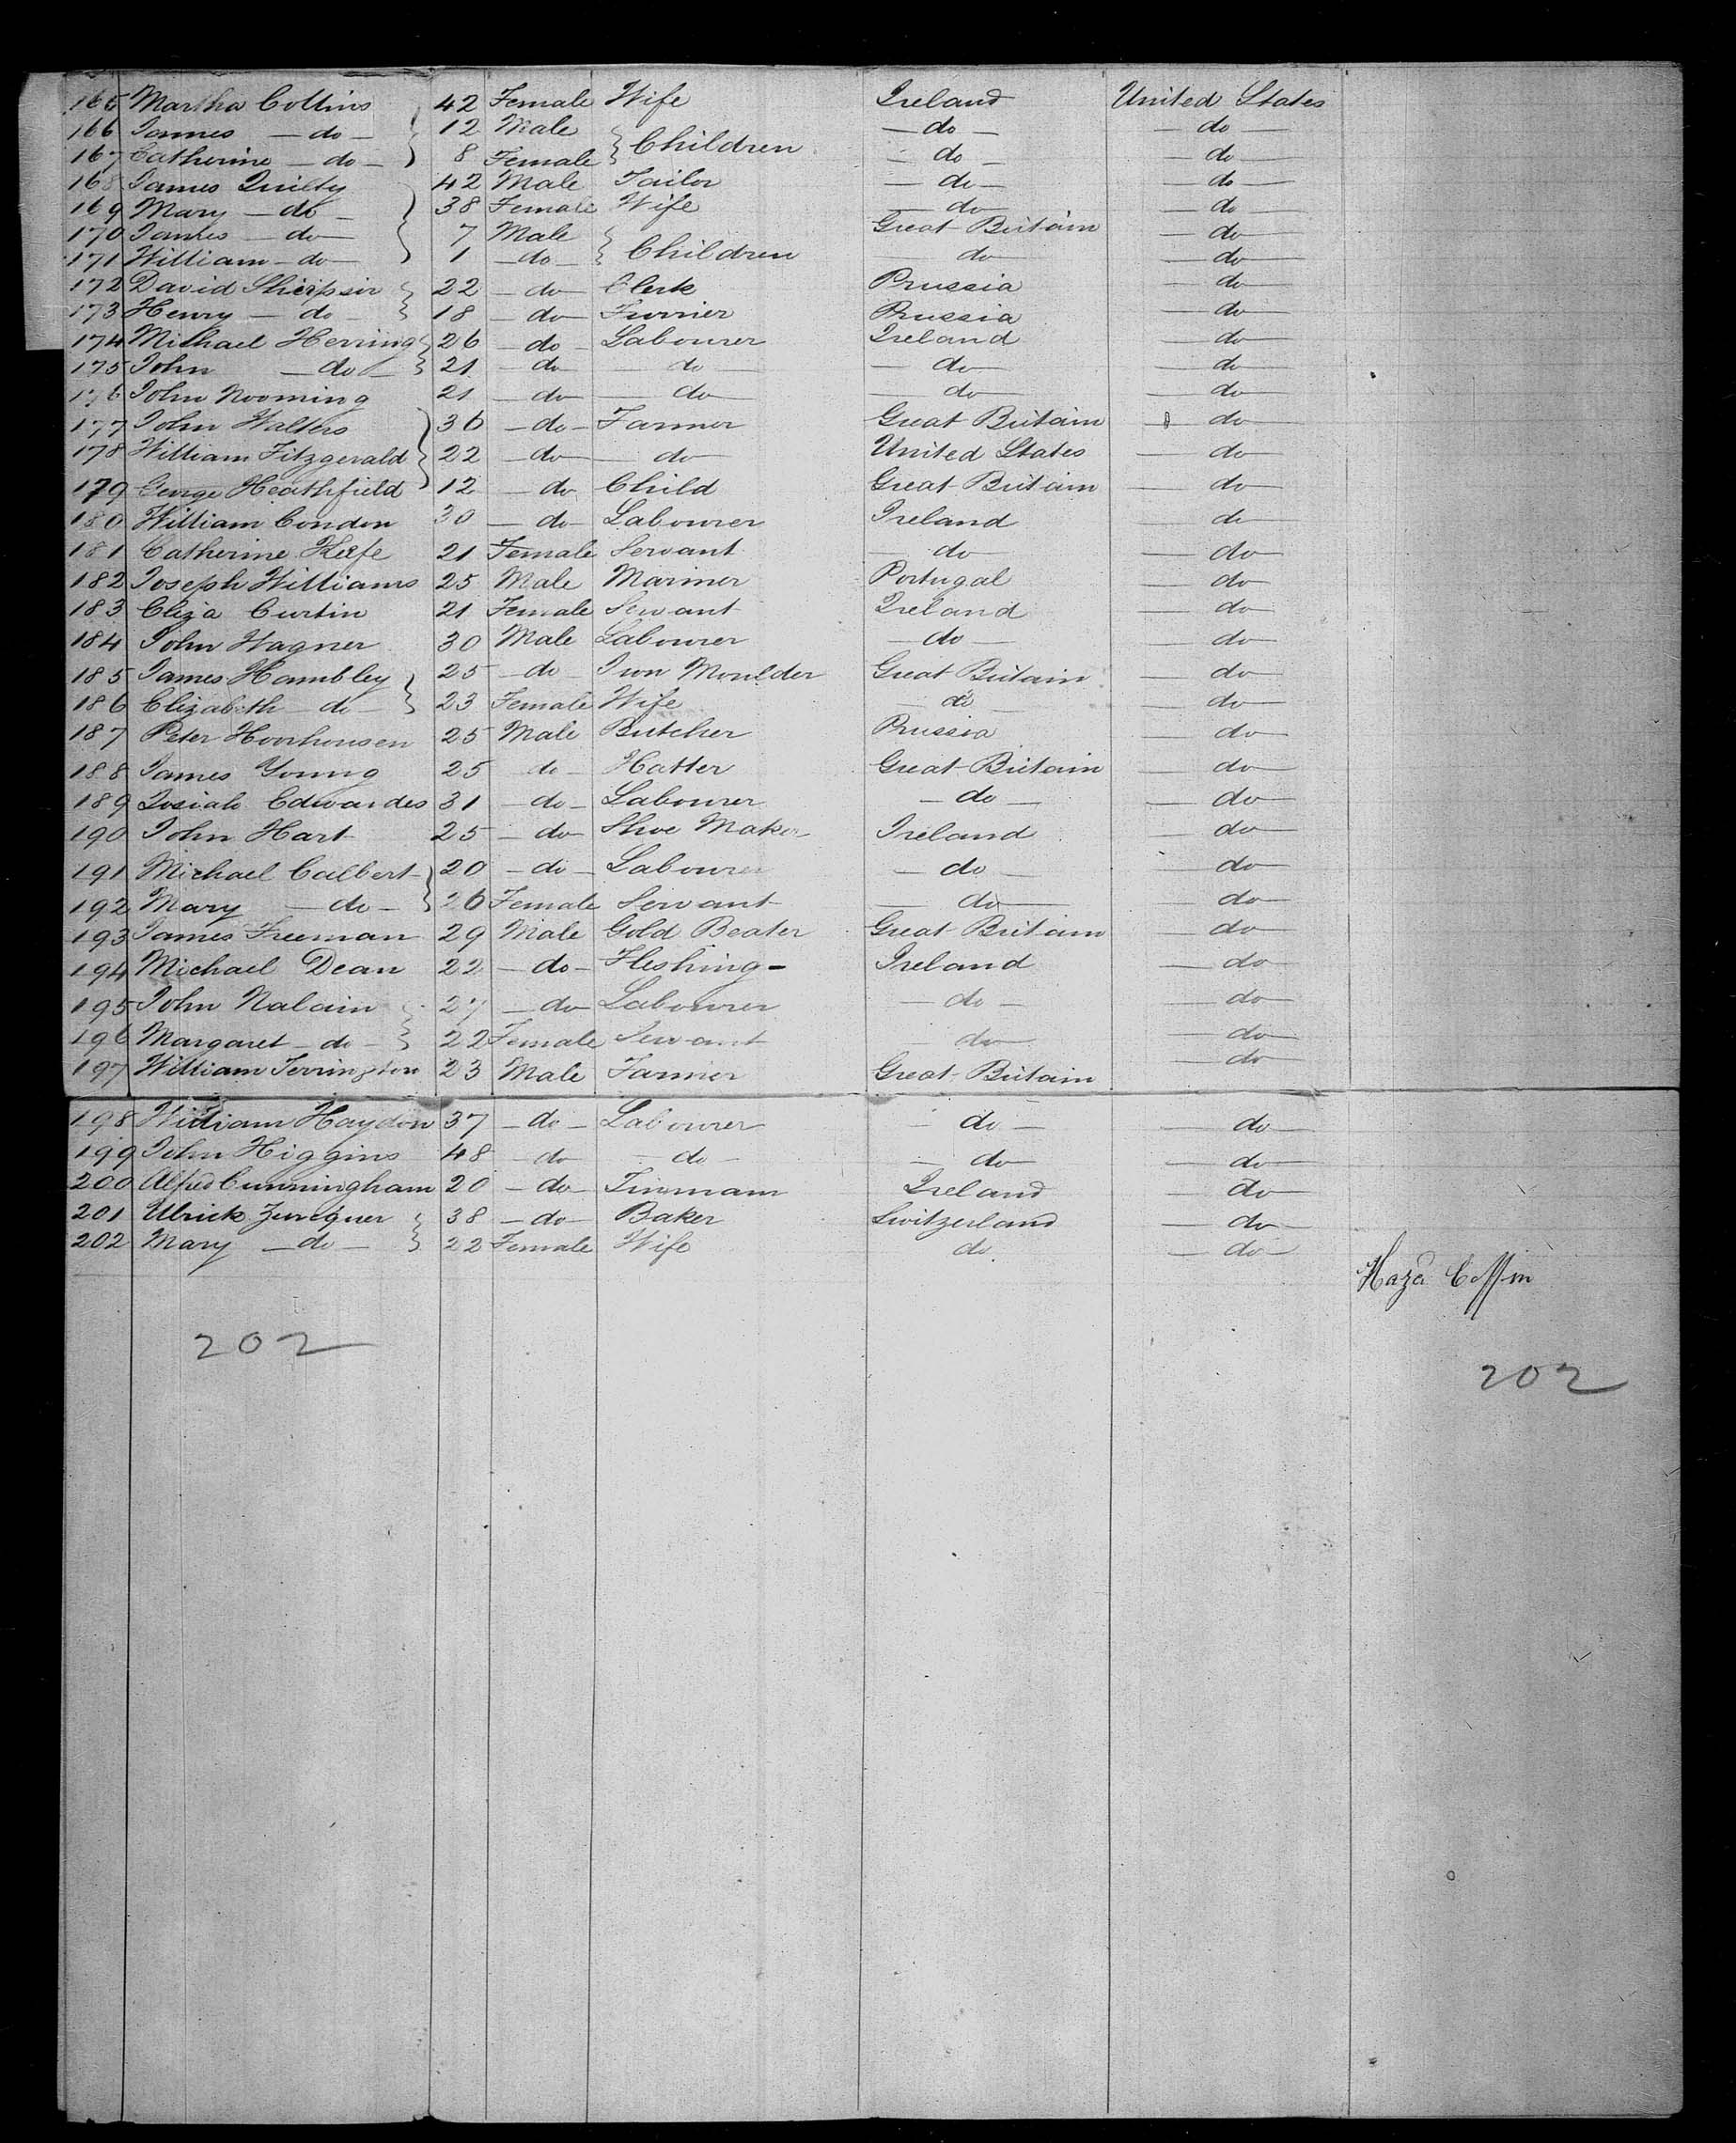 165 Martha Collins 42 Female Wife Ireland United States
166 James – do – 12 Male } Children – do – – do –
167 Catherine – do – 8 Female – do – – do –
168 James Quilty 42 Male Tailor – do – – do –
169 Mary – do – 38 Female Wife – do – – do –
170 James – do – 7 Male } Children Great Britain – do –
171 William – do – 1 – do – do – do –
172 David 22 – do – Clerk Prussia – do –
173 Henry – do – 18 – do – Furrier Prussia – do –
174 Michael Herring 26 – do – Labourer Ireland – do –
175 John – do – 21 – do – do – do – – do –
176 John Nooming 21 – do – do – do – – do –
177 John Walters 36 – do – Farmer Great Britain – do –
178 William Fitzgerald 22 – do – do – United States – do –
179 George Heathfield 12 – do Child Great Britain – do –
180 William Condon 30 – do – Labourer Ireland – do –
181 Catherine Keefe 21 Female Servant – do – – do –
182 Joseph Williams 25 Male Mariner Portugal – do –
183 Eliza Curtin 21 Female Servant Ireland – do –
184 John Wagner 30 Male Labourer – do – – do –
185 James Hambley 25 – do – Iron Moulder Great Britain – do –
186 Elizabeth – do – 23 Female Wife – do – – do –
187 Peter Hoorhousen 25 Male Butcher Prussia – do –
188 James Young 25 do – Hatter Great Britain – do –
189 Josiah Edwardes 31 – do – Labourer – do – – do –
190 John Hart 25 – do – Shoe Maker Ireland – do –
191 Michael Calbert 20 – do – Labourer – do – – do –
192 Mary – do – 26 Female Servant – do – do –
193 James Freeman 29 Male Gold Beater Great Britain – do –
194 Michael Dean 22 – do – Fleshing – Ireland – do –
195 John Nalain 27 – do – Labourer – do – – do –
196 Margaret – do – 22 Female Servant do – – do –
197 William Terrington 23 Male Farmer Great Britain – do –
198 William Haydon 37 – do – Labourer – do – – do –
199 John Higgins 48 – do – do – – do – – do –
200 Alfred Cunningham 20 – do – Tinsman Ireland – do –
201 Ulrick 38 – do – Baker Switzerland – do –
202 Mary – do – 22 Female Wife do – do –
Coffin
202
202